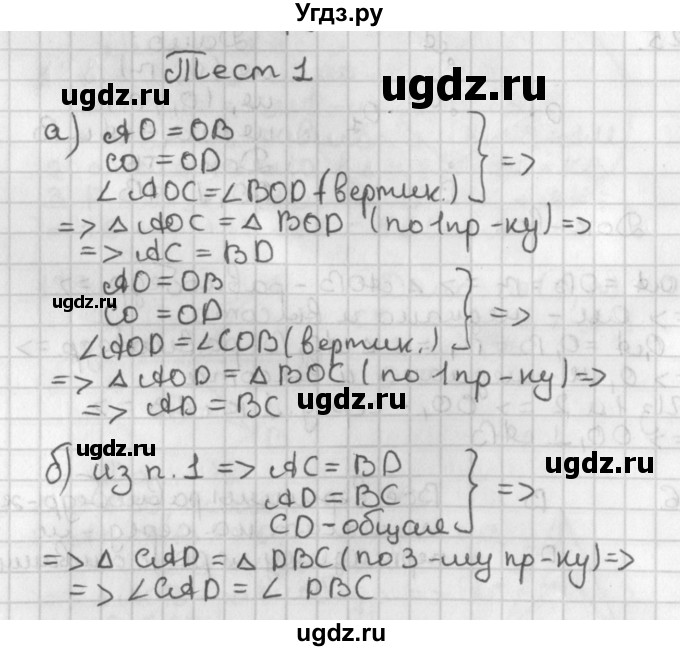 Угдз.ру
Тест 1
ugdz.ru
ugdz.ru
а) AO = OB
CO = OD
∠AOC = ∠BOD (вертик.) } =>
=> △ AOC = △ BOD (по 1 пр-ку) =>
=> AC = BD
AO = OB
ugdz.ru
ugdz.ru
CO = OD
∠AOD = ∠COB (вертик.) } =>
=> △ AOD = △ BOC (по 1 пр-ку) =>
=> AD = BC
ugdz.ru
ugdz.ru
б) из п. 1 => AC = BD
ugdz.ru
AD = BC
CD - общая } =>
=> △ CAD = △ DBC (по 3-му пр-ку) =>
=> ∠CAD = ∠ DBC
ugdz.ru
ugdz.ru